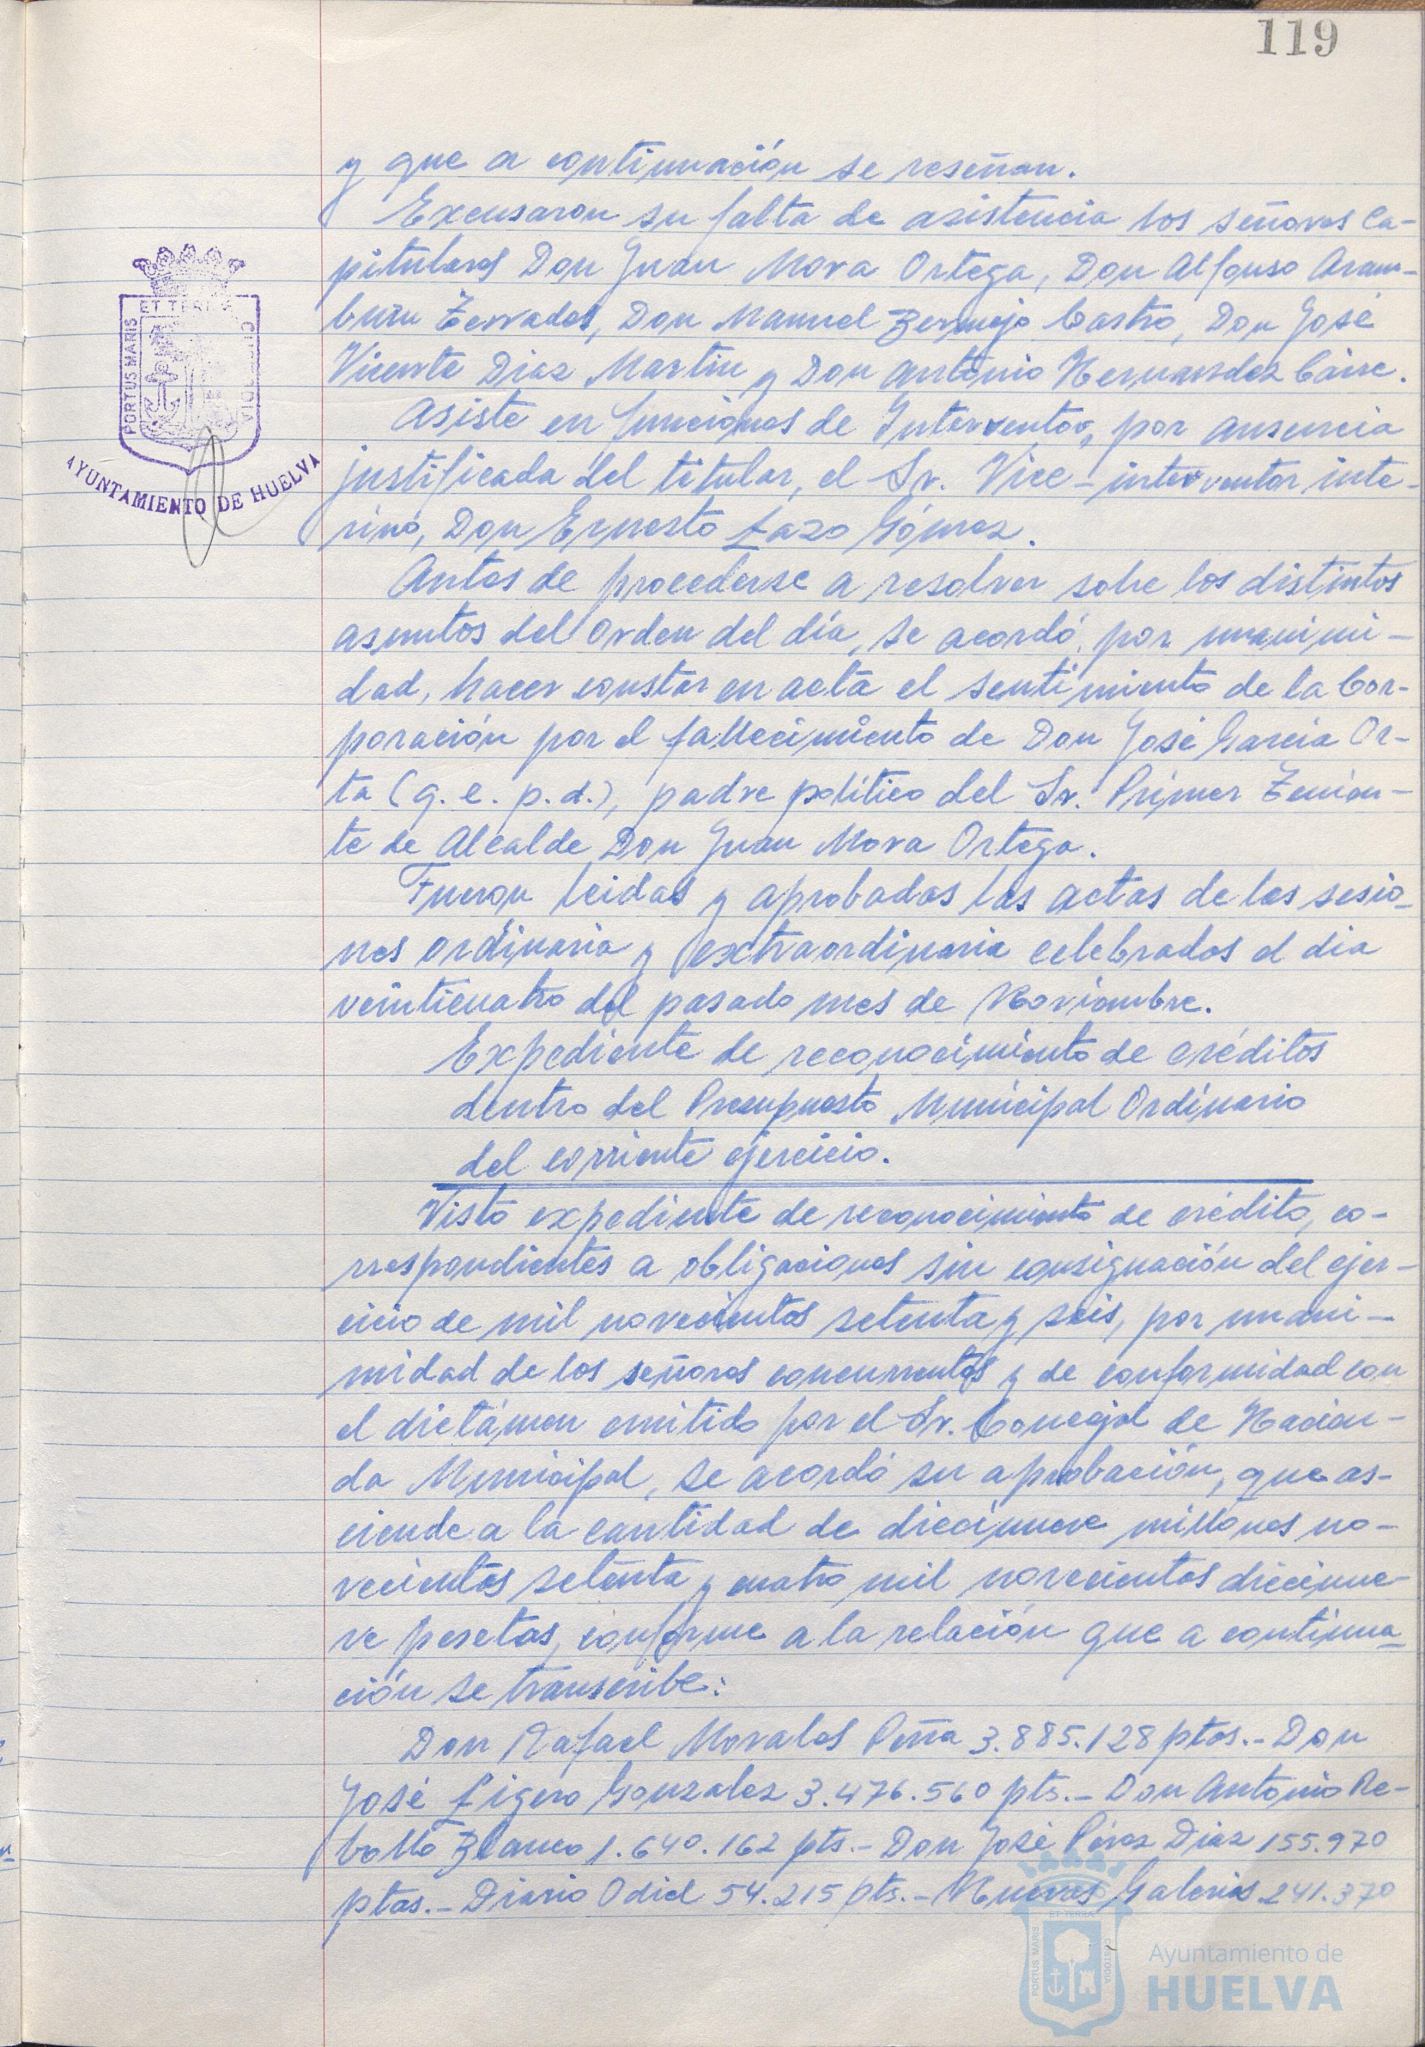 119
y que a continuación se reseñan.
Excusaron su falta de asistencia los señores Ca-
pitulares Don Juan Mora Ortega, Don Alfonso Aram-
buru Terrades, Don Manuel Bermejo Castro, Don José
Vicente Diaz Martin y Don Antonio Hernandez Caire.
Asiste en funciones de Interventor, por ausencia
justificada del titular, el Sr. Vice-interventor inte-
rino, Don Ernesto Lazo Gómez.
Antes de procederse a resolver sobre los distintos
asuntos del Orden del día, se acordó, por unanimi-
dad, hacer constar en acta el sentimiento de la Cor-
poración por el fallecimiento de Don José Garcia Or-
ta (q. e. p. d.), padre político del Sr. Primer Tenien-
te de Alcalde Don Juan Mora Ortega.
Fueron leidas y aprobadas las actas de las sesio-
nes ordinaria y extraordinaria celebradas el dia
veinticuatro del pasado mes de Noviembre.
Expediente de reconocimiento de créditos
dentro del Presupuesto Municipal Ordinario
del corriente ejercicio.
Visto expediente de reconocimiento de crédito, co-
rrespondientes a obligaciones sin consignación del ejer-
cicio de mil novecientos setenta y seis, por unani-
midad de los señores concurrentes y de conformidad con
el dictámen emitido por el Sr. Concejal de Hacien-
da Municipal, se acordó su aprobación, que as-
ciende a la cantidad de diecinueve millones no-
vecientos setenta y cuatro mil novecientas diecinue-
ve pesetas, conforme a la relación que a continua-
ción se transcribe:
Don Rafael Morales Peña 3.885.128 ptas.- Don
José Ligero Gonzalez 3.476.560 pts.- Don Antonio Re-
bollo Blanco 1.640.162 pts.- Don José Pérez Diaz 155.970
ptas.- Diario Odiel 54.215 pts.- Nuevas Galerias 241.370
PORTUS MARIS
ET TERRAE
CUSTODIA
AYUNTAMIENTO DE HUELVA
PORTUS MARIS
ET TERRA
CUSTODIA
Ayuntamiento de
HUELVA